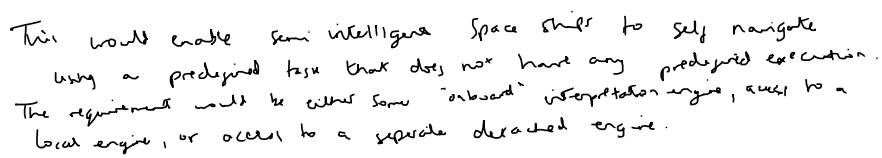 This would enable semi intelligent space ships to self navigate
using a predefined task that does not have any predefined execution.
The requirement would be either some "onboard" interpretation engine, access to a
local engine, or access to a seperate detached engine.